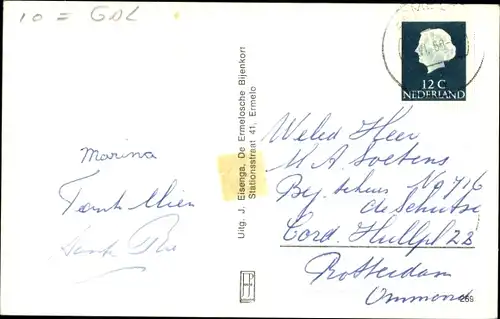 10 = GDL
12 C
NEDERLAND
Uitg. J. Eisenga, De Ermelosche Bijenkorf
Stationsstraat 41, Ermelo
Marina
Tante Mien
Weled Heer
M A Soetens
Bej. tehuis
de Schutse
Cord. Hullpl 22
Rotterdam
Ommoord
269